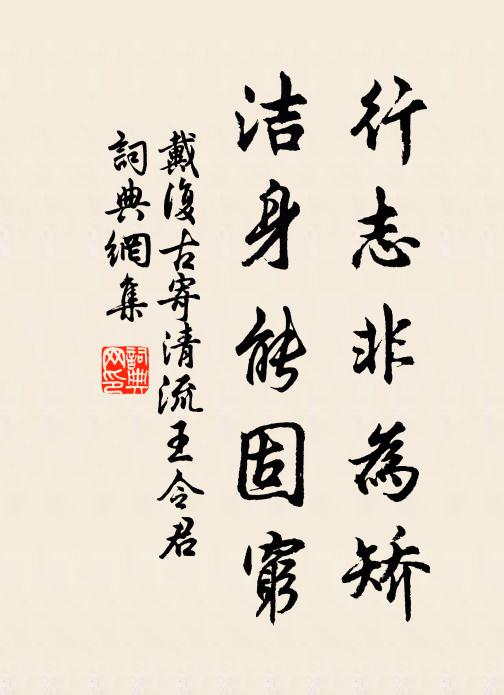 行志非為矯
洁身能固窮
戴復古寄清流王令君
詞典網集
詞典
网印